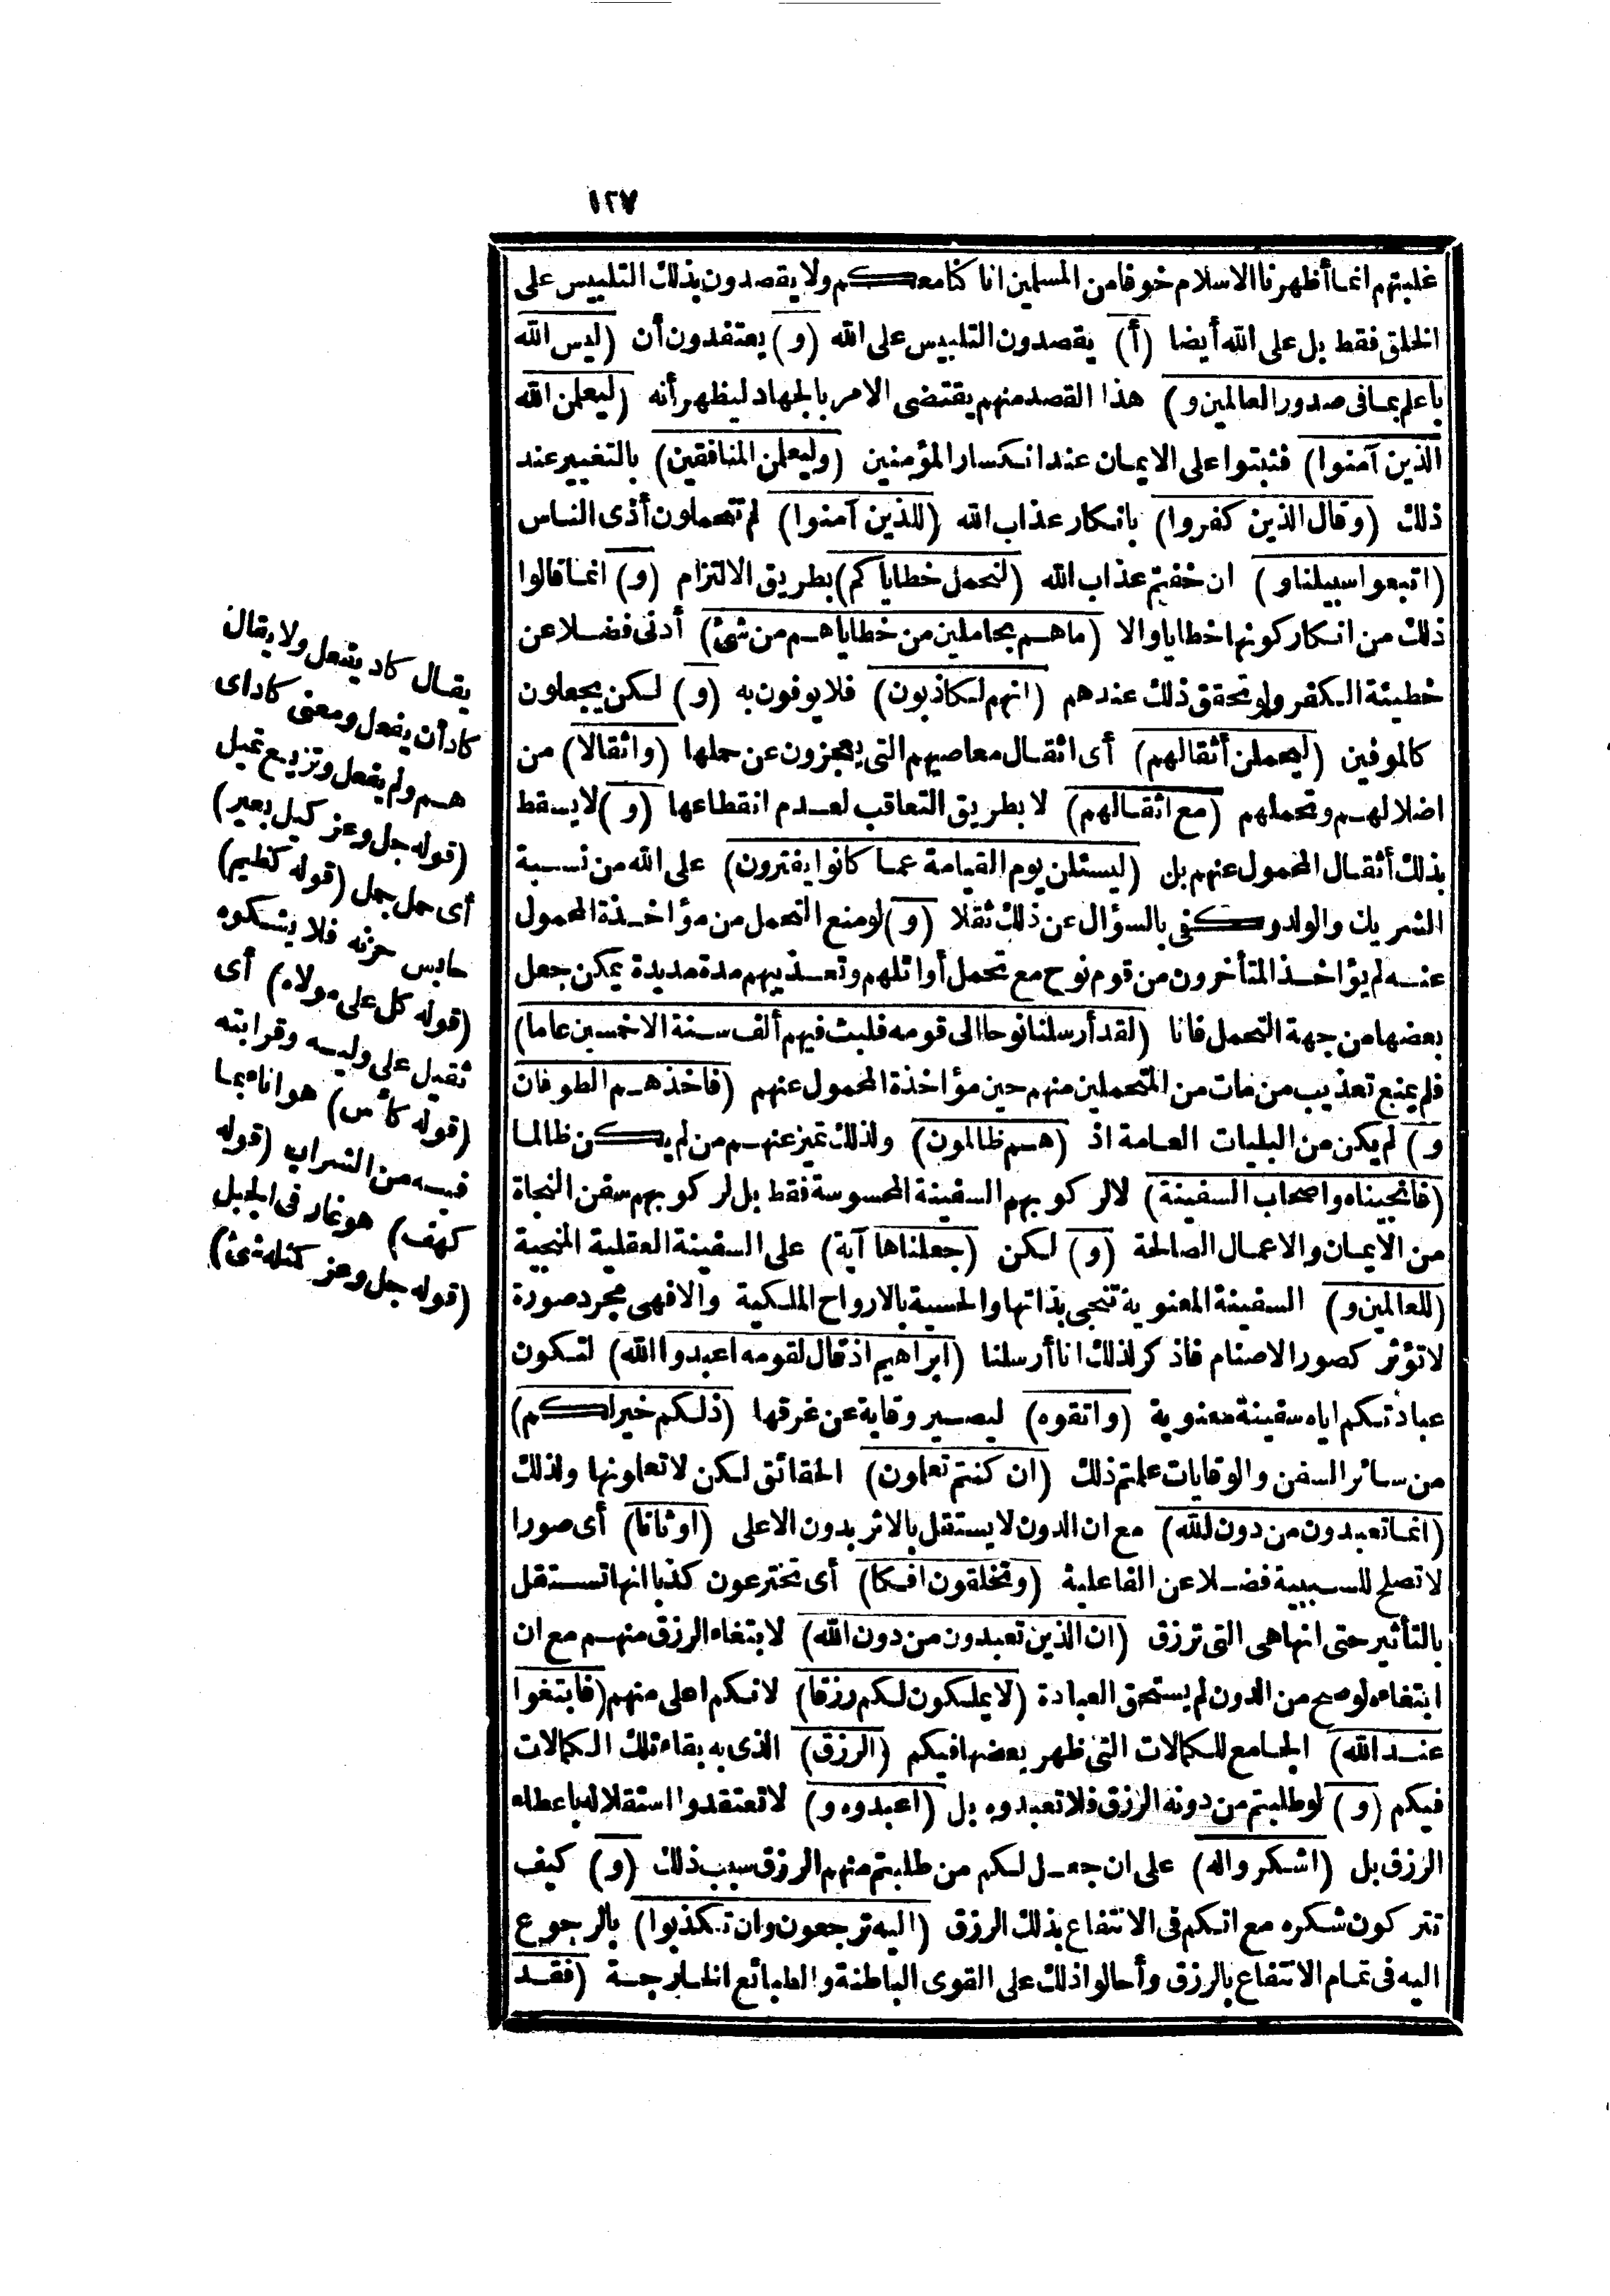 ١٢٧
غلبتهم انما أظهرنا الاسلام خوفا من المسلمين انا كنا معكم ولا يقصدون بذلك التلبيس على
الخلق فقط بل على الله أيضا (أ) يقصدون التلبيس على الله (و) يعتقدون أن (ليس الله
باعلم بما فى صدور العالمين و) هذا القصد منهم يقتضى الامر بالجهاد ليظهر أنه (ليعلمن الله
الذين آمنوا) فثبتوا على الايمان عند انكسار المؤمنين (وليعلمن المنافقين) بالتغيير عند
ذلك (وقال الذين كفروا) بانكار عذاب الله (للذين آمنوا) لم تتحملون أذى الناس
(اتبعوا سبيلنا و) ان خفتم عذاب الله (لنحمل خطاياكم) بطريق الالتزام (و) انما قالوا
ذلك من انكار كونها خطايا والا (ما هم بحاملين من خطاياهم من شئ) أدنى فضلا عن
خطيئة الكفر ولو تحقق ذلك عندهم (انهم لكاذبون) فلا يوفون به (و) لكن يجعلون
كالموفين (ليحملن أثقالهم) أى اثقال معاصيهم التى يعجزون عن حملها (واثقالا) من
اضلالهم وتحملهم (مع اثقالهم) لا بطريق التعاقب لعدم انقطاعها (و) لا يسقط
بذلك أثقال المحمول عنهم بل (ليسئلن يوم القيامة عما كانوا يفترون) على الله من نسبة
الشريك والولد وكفى بالسؤال عن ذلك ثقلا (و) لو منع التحمل من مؤاخذة المحمول
عنه لم يؤاخذ المتأخرون من قوم نوح مع تحمل أوائلهم وتعذيبهم مدة مديدة يمكن جعل
بعضها من جهة التحمل فانا (لقد أرسلنا نوحا الى قومه فلبث فيهم ألف سنة الا خمسين عاما)
فلم يمنع تعذيب من مات من المتحملين منهم حين مؤاخذة المحمول عنهم (فاخذهم الطوفان
و) لم يكن من البليات العامة اذ (هم ظالمون) ولذلك تميز عنهم من لم يكن ظالما
(فانجيناه واصحاب السفينة) لا لركوبهم السفينة المحسوسة فقط بل لركوبهم سفن النجاة
من الايمان والاعمال الصالحة (و) لكن (جعلناها آية) على السفينة العقلية المنجية
(للعالمين و) السفينة المعنوية تنجى بذاتها والحسية بالارواح الملكية والا فهى مجرد صورة
لا تؤثر كصور الاصنام فاذكر لذلك انا أرسلنا (ابراهيم اذ قال لقومه اعبدوا الله) لتكون
عبادتكم اياه سفينة معنوية (واتقوه) ليصير وقاية عن غرقها (ذلكم خير لكم)
من سائر السفن والوقايات علمتم ذلك (ان كنتم تعلمون) الحقائق لكن لا تعلمونها ولذلك
(انما تعبدون من دون الله) مع ان الدون لا يستقل بالاثر بدون الاعلى (اوثانا) أى صورا
لا تصلح للسببية فضلا عن الفاعلية (وتخلقون افكا) أى تخترعون كذبا انها تستقل
بالتأثير حتى انها هى التى ترزق (ان الذين تعبدون من دون الله) لابتغاء الرزق منهم مع ان
ابتغاءه لو صح من الدون لم يستحق العبادة (لا يملكون لكم رزقا) لانكم اعلى منهم (فابتغوا
عند الله) الجامع للكمالات التى ظهر بعضها فيكم (الرزق) الذى به بقاء تلك الكمالات
فيكم (و) لو طلبتم من دونه الرزق فلا تعبدوه بل (اعبدوه و) لا تعتقدوا استقلاله باعطاء
الرزق بل (اشكروا له) على ان جعل لكم من طلبتم منهم الرزق سبب ذلك (و) كيف
تتركون شكره مع انكم فى الانتفاع بذلك الرزق (اليه ترجعون وان تكذبوا) بالرجوع
اليه فى تمام الانتفاع بالرزق وأحالوا ذلك على القوى الباطنة والطبائع الخارجة (فقد
يقال كاد يفعل ولا يقال
كاد أن يفعل ومعنى كاد اى
هم ولم يفعل وتزيغ تميل
(قوله جل وعز كيل بعير)
أى حمل جمل (قوله كظيم)
حابس حزنه فلا يشكوه
(قوله كل على مولاه) أى
ثقيل على وليه وقرابته
(قوله كأس) هو اناء بما
فيه من الشراب (قوله
كهف) هو غار فى الجبل
(قوله جل وعز كمثله شئ)